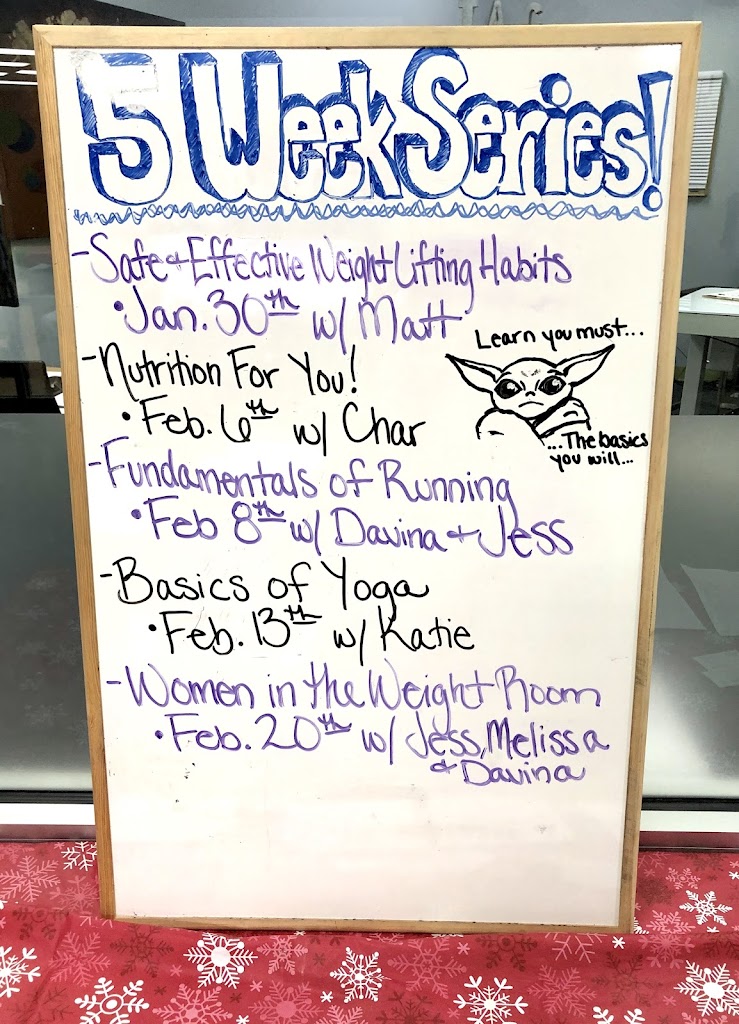 5 Week Series!
- Safe & Effective Weight Lifting Habits
• Jan. 30th w/ Matt
Learn you must...
- Nutrition For You!
• Feb. 6th w/ Char
...The basics
you will...
- Fundamentals of Running
• Feb 8th w/ Davina & Jess
- Basics of Yoga
• Feb. 13th w/ Katie
- Women in the Weight Room
• Feb. 20th w/ Jess, Melissa
& Davina